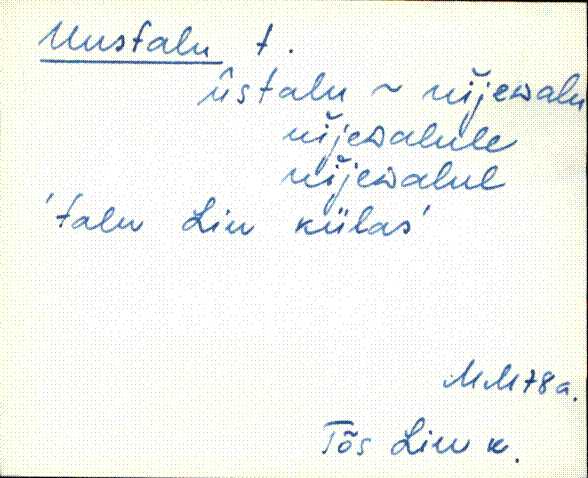 Uustalu t.
ūstalu ~ uĭjewalu
uĭjewalule
uĭjewalul
'talu Liu külas'
MM78a.
Tõs Liu k.